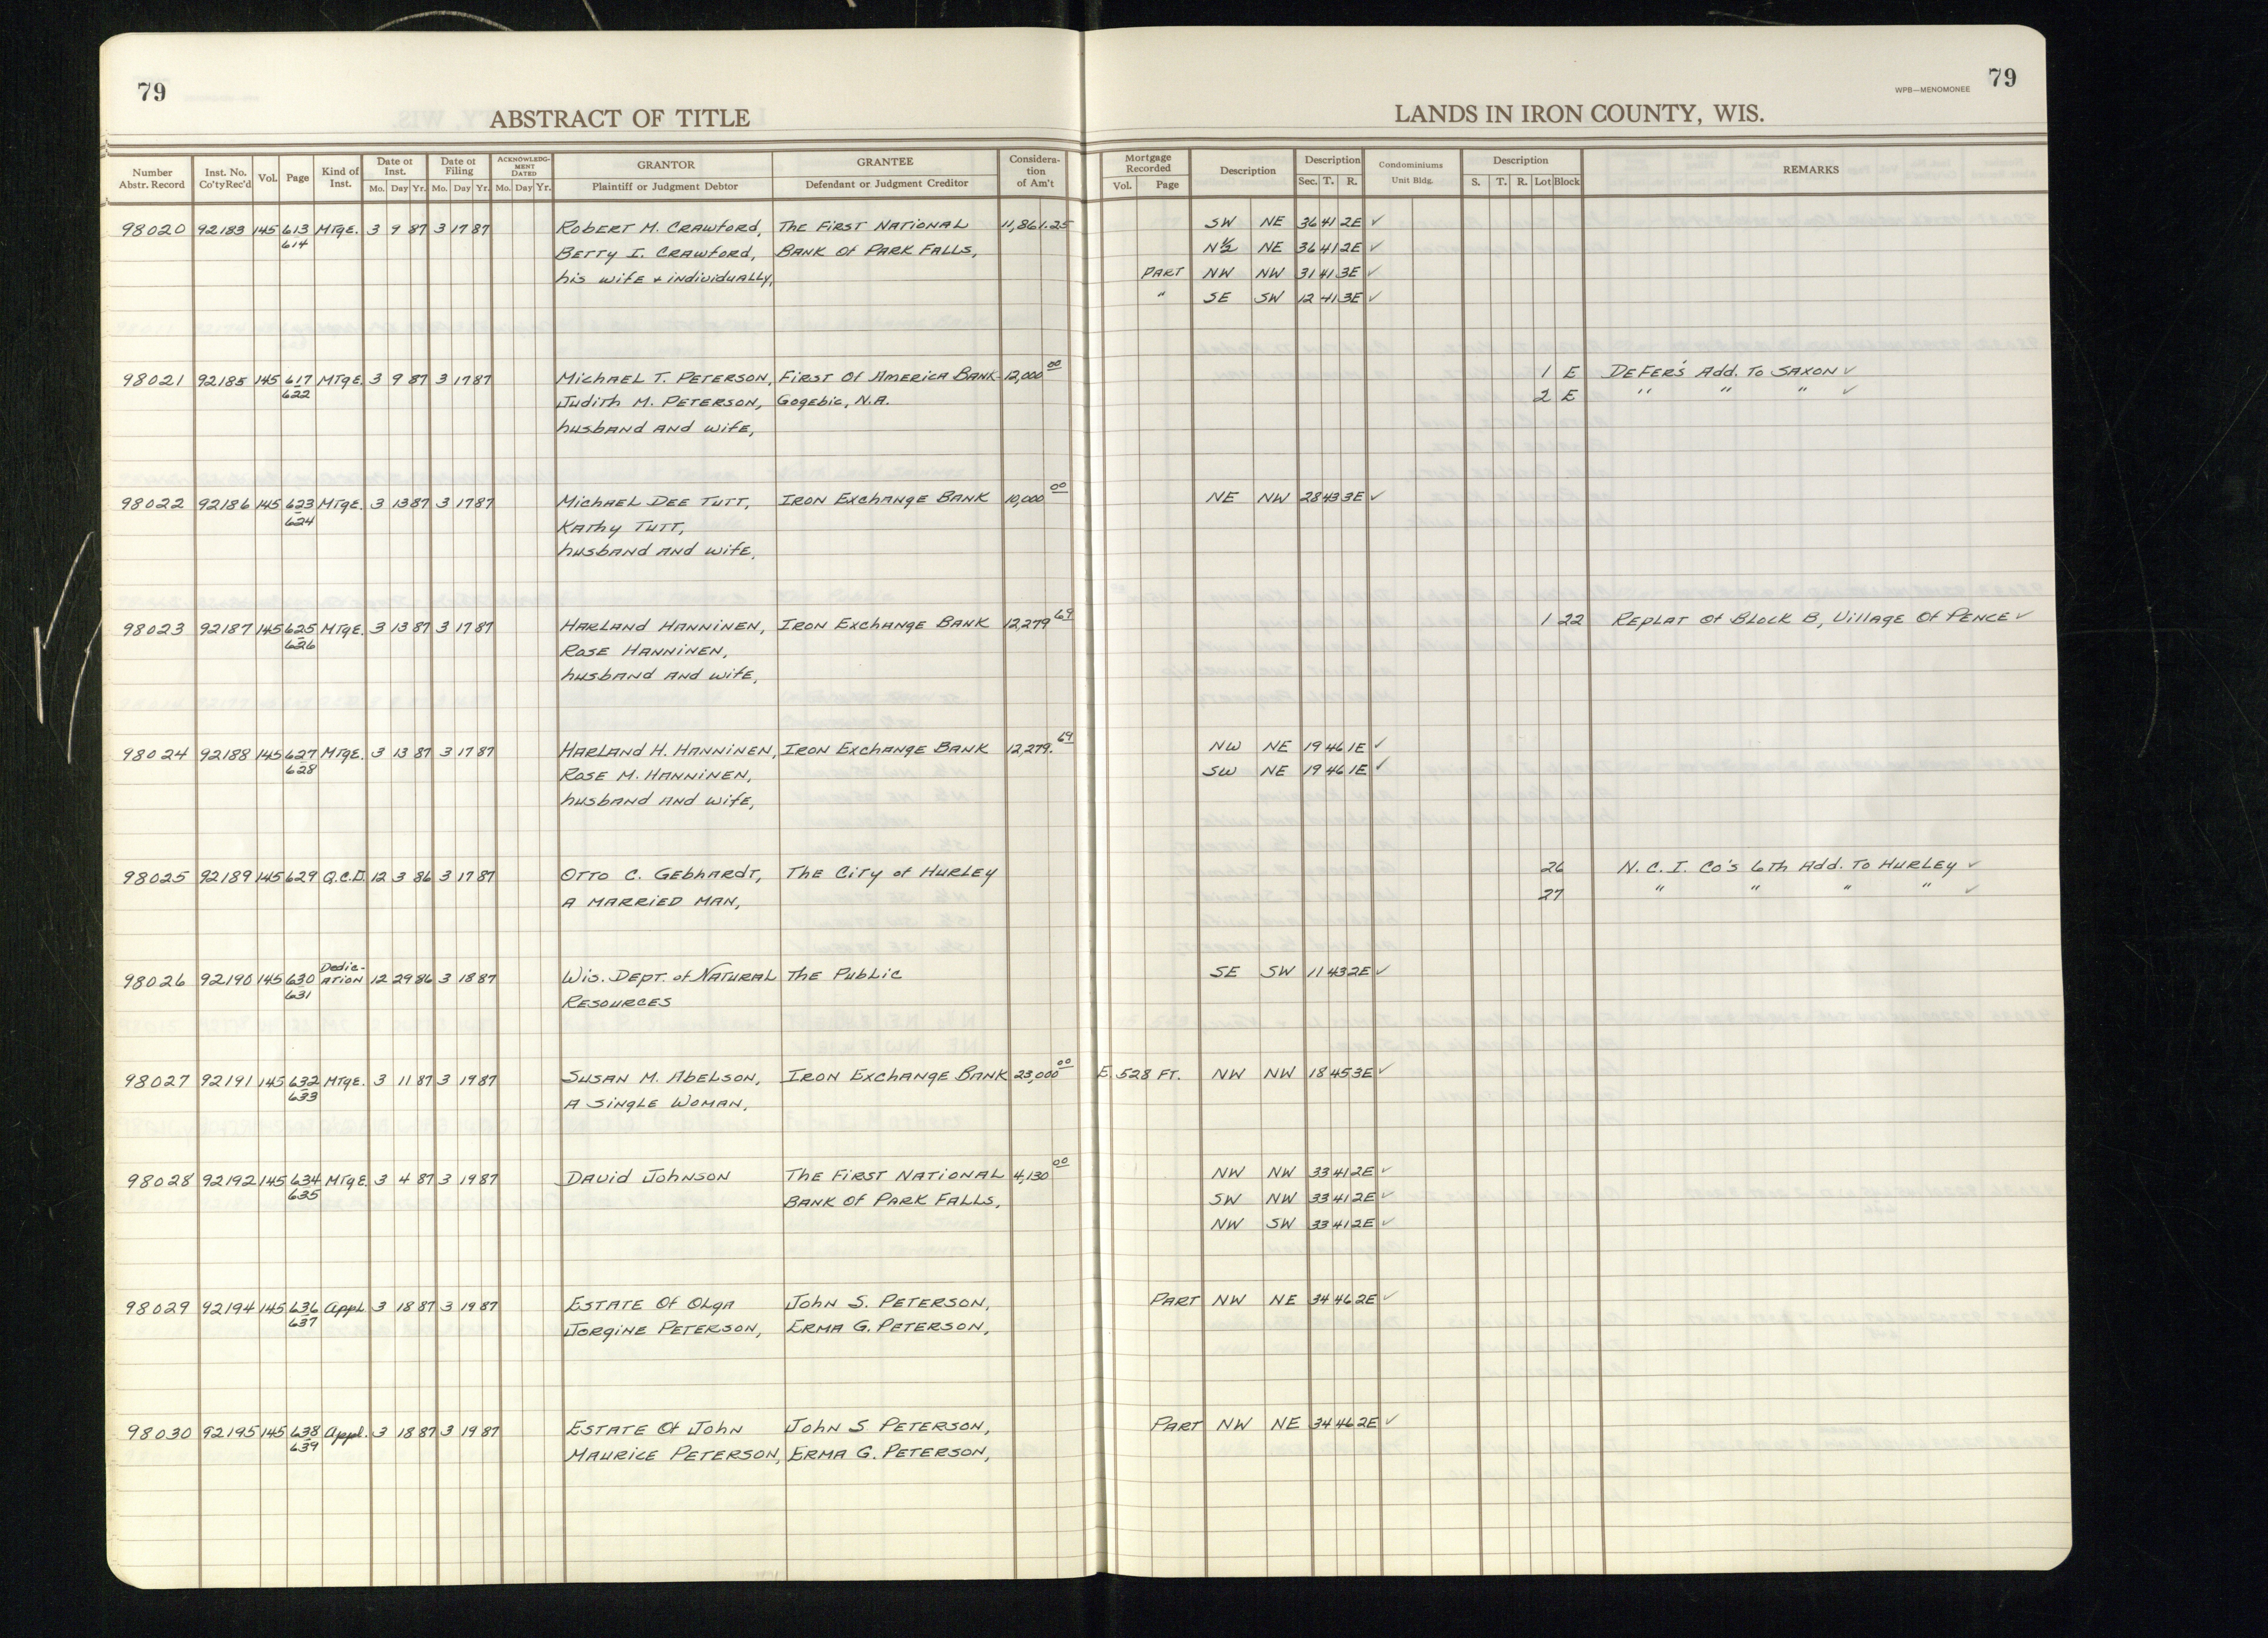 79
ABSTRACT OF TITLE
Number Abstr. Record | Inst. No. Co'ty Rec'd | Vol. | Page | Kind of Inst. | Date of Inst. Mo. Day Yr. | Date of Filing Mo. Day Yr. | ACKNOWLEDGMENT DATED Mo. Day Yr. | GRANTOR Plaintiff or Judgment Debtor | GRANTEE Defendant or Judgment Creditor | Consideration of Am't
79
WPB—MENOMONEE
LANDS IN IRON COUNTY, WIS.
Mortgage Recorded Vol. Page | Description | Description Sec. T. R. | Condominiums Unit Bldg. | Description S. T. R. Lot Block | REMARKS
98020 92183 145 613 MTgE. 3 9 87 3 17 87 Robert M. Crawford, The First National 11,861.25 SW NE 36 41 2E ✓
614 Betty I. Crawford, Bank Of Park Falls, N½ NE 36 41 2E ✓
his wife + individually, Part NW NW 31 41 3E ✓
" SE SW 12 41 3E ✓
98021 92185 145 617 MTgE. 3 9 87 3 17 87 Michael T. Peterson, First Of America Bank- 12,000 00 1 E DeFer's Add. To Saxon ✓
622 Judith M. Peterson, Gogebic, N.A. 2 E " " " ✓
husband and wife,
98022 92186 145 623 MTgE. 3 13 87 3 17 87 Michael Dee Tutt, Iron Exchange Bank 10,000 00 NE NW 28 43 3E ✓
624 Kathy Tutt,
husband and wife,
98023 92187 145 625 MTgE. 3 13 87 3 17 87 Harland Hanninen, Iron Exchange Bank 12,279 69 1 22 Replat Of Block B, Village Of Pence ✓
626 Rose Hanninen,
husband and wife,
98024 92188 145 627 MTgE. 3 13 87 3 17 87 Harland H. Hanninen, Iron Exchange Bank 12,279. 69 NW NE 19 46 1E ✓
628 Rose M. Hanninen, SW NE 19 46 1E ✓
husband and wife,
98025 92189 145 629 Q.C.D. 12 3 86 3 17 87 Otto C. Gebhardt, The City of Hurley 26 N.C.I. Co's 6th Add. To Hurley ✓
A married man, 27 " " " " ✓
98026 92190 145 630 Dedic-ation 12 29 86 3 18 87 Wis. Dept. of Natural The Public SE SW 11 43 2E ✓
631 Resources
98027 92191 145 632 MTgE. 3 11 87 3 19 87 Susan M. Abelson, Iron Exchange Bank 23,000 00 E. 528 FT. NW NW 18 45 3E ✓
633 A single woman,
98028 92192 145 634 MTgE. 3 4 87 3 19 87 David Johnson The First National 4,130 00 NW NW 33 41 2E ✓
635 Bank Of Park Falls, SW NW 33 41 2E ✓
NW SW 33 41 2E ✓
98029 92194 145 636 Appl. 3 18 87 3 19 87 Estate Of Olga John S. Peterson, Part NW NE 34 46 2E ✓
637 Jorgine Peterson, Erma G. Peterson,
98030 92195 145 638 Appl. 3 18 87 3 19 87 Estate Of John John S Peterson, Part NW NE 34 46 2E ✓
639 Maurice Peterson, Erma G. Peterson,